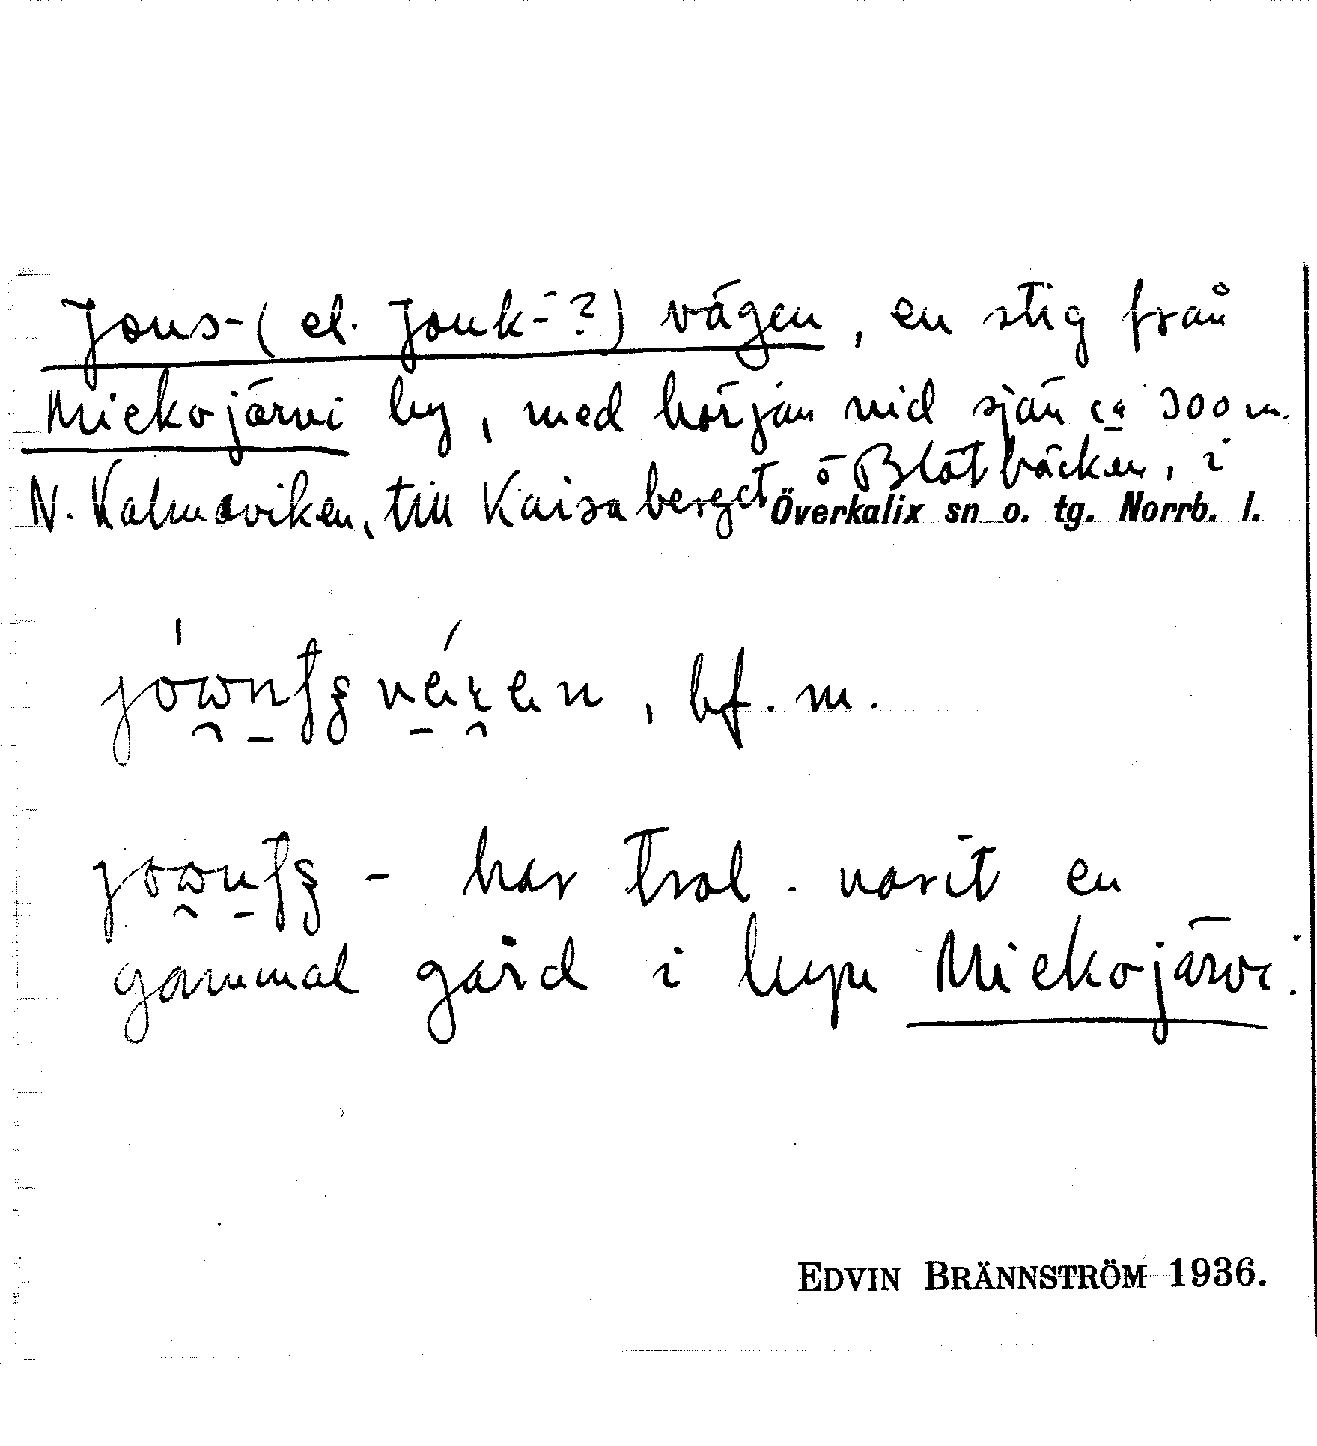 Jons- (el. Jonk- ?) vägen, en stig från
Mickojärvi by, med början vid sjön ca 300 m.
N. Kalmaviken, till Kaisaberget ö Blötbäcken, i
Överkalix sn o. tg. Norrb. l.
bf. m.
- har trol. varit en
gammal gård i byn Mickojärvi.
EDVIN BRÄNNSTRÖM 1936.